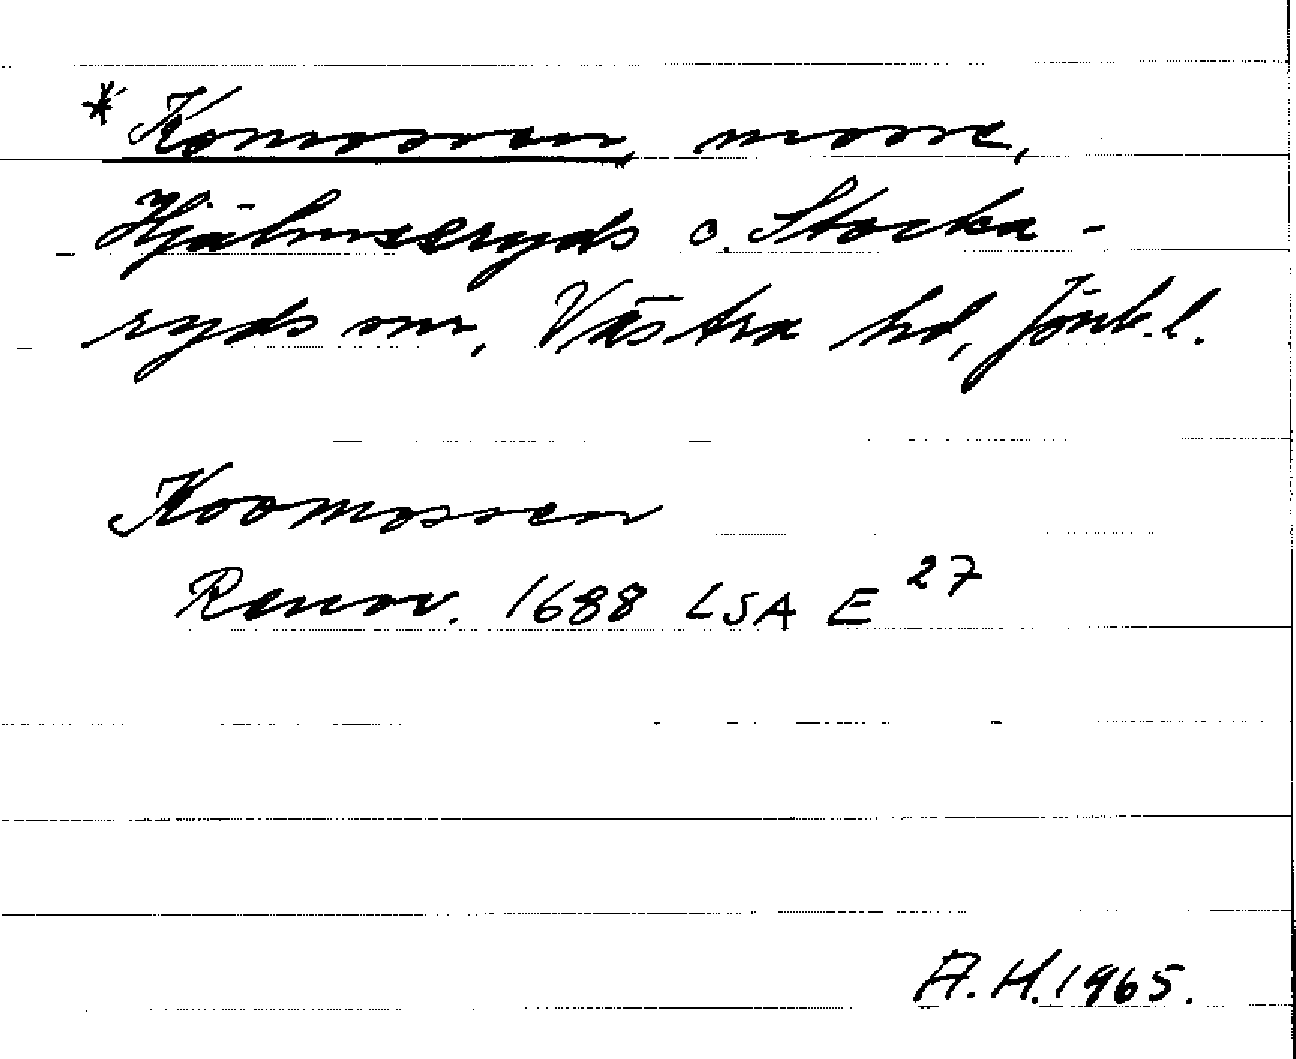 * Komossen, mosse,
Hjälmseryds o. Stocka-
ryds snr, Västra hd, Jönk.l.
Koomossen
Renov. 1688 LSA E 27
A.H. 1965.